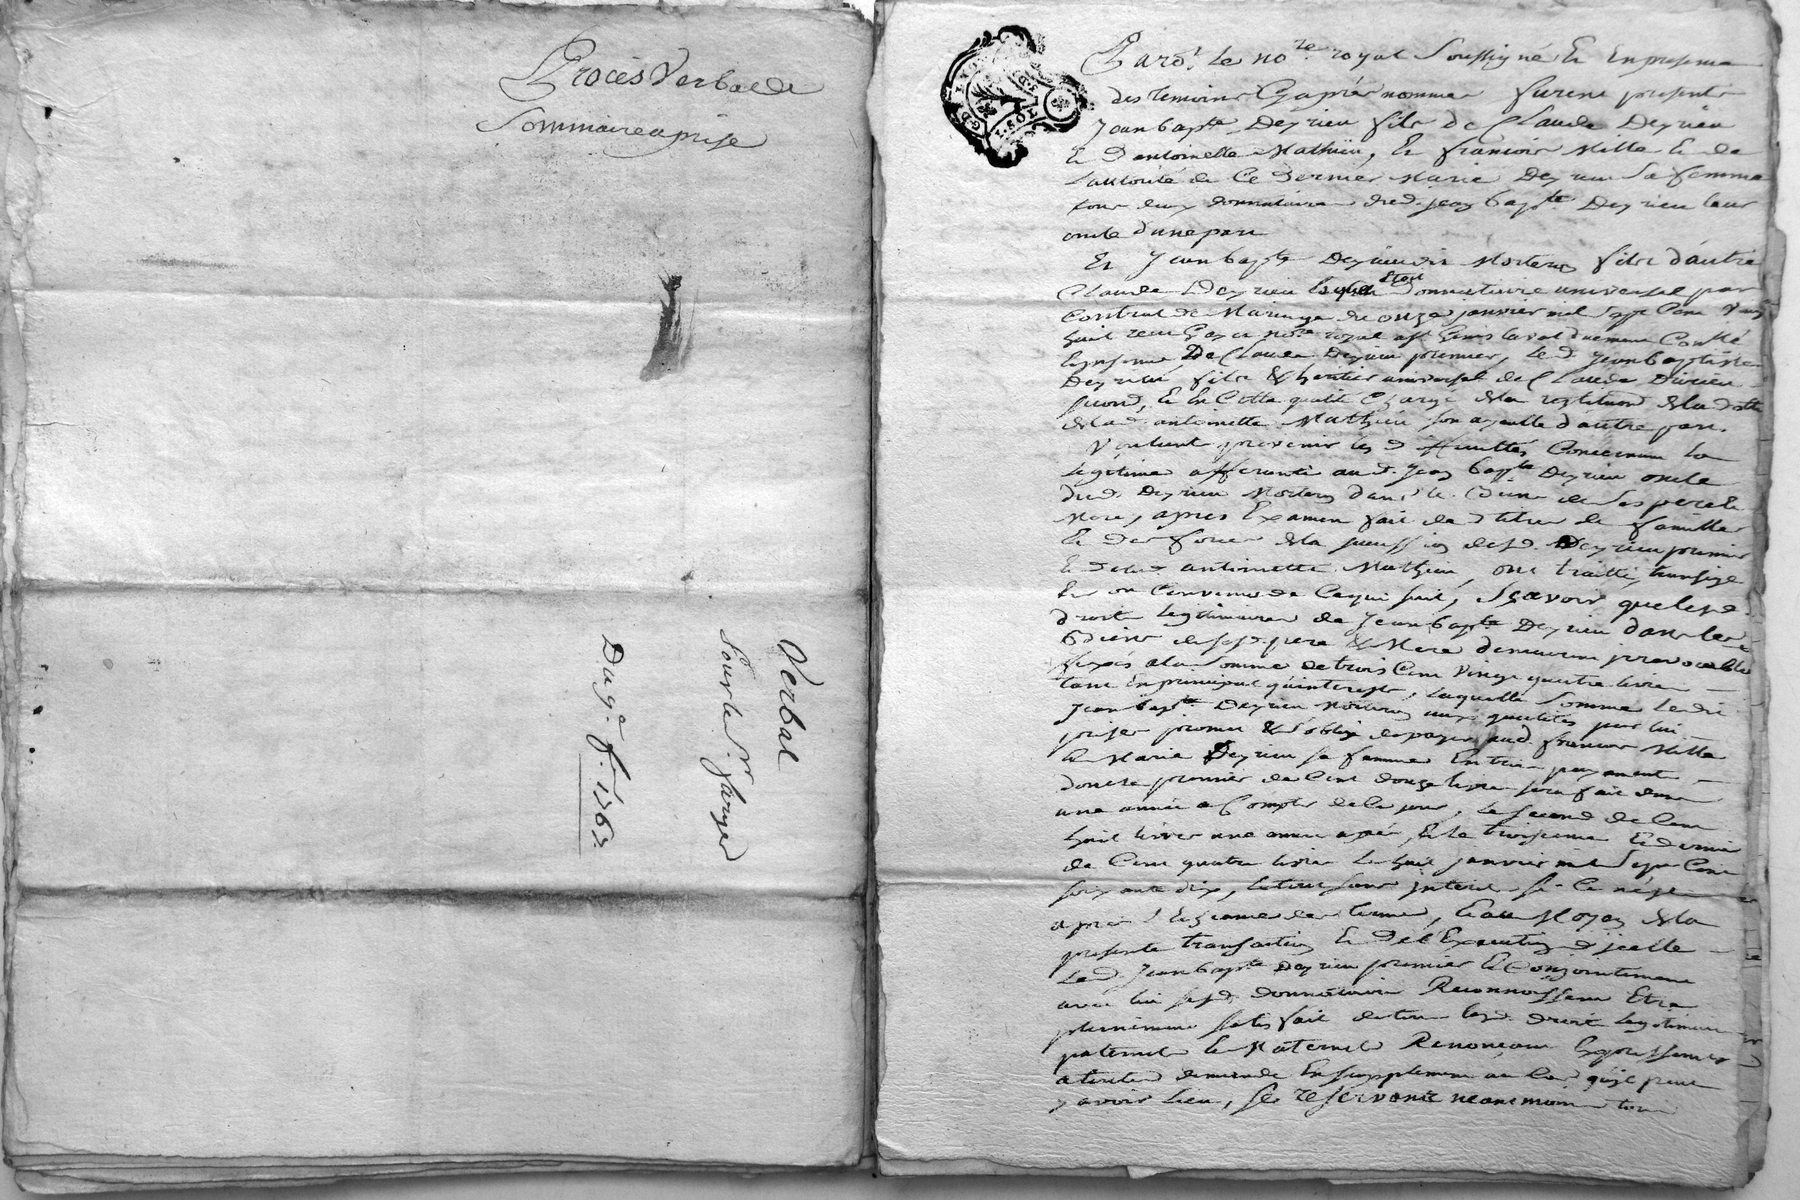 Procès Verbal de
Sommaire aprise
Verbal
Pour le Sr farge
Du 9e f. 1763
G.D. LYON
1. SOL
Pardt le nore royal Soussigné & en presence
des temoins Cy après nommes furent presents
Jean bapte Deyrieu fils de Claude Deyrieu
& d'antoinette Mathieu, & francois Mille & de
Lautorité de Ce dernier Marie Deyrieu Sa femme
tous deux donnataires dud. jean bapte Deyrieu leur
oncle d'une part
Et Jean bapte Deyrieu dit Morteros fils d'autre
Claude Deyrieu lequel Etoit donnataire universel par
Contrat de Mariage du onze janvier mil Sept Cent vingt
huit recu nore royal
de Claude Deyrieu premier, le d. Jean baptiste
Deyrieu fils & heritier universel de Claude Deyrieu
second, & en Cette qualité Chargé de la restitution de la dotte
de lad. antoinette Mathieu son ayeulle d'autre part.
Voulant prevenir les difficultés Concernant la
legitime afferante aud. Jean bapte Deyrieu oncle
dud. Deyrieu Morteros dans le Biens de ses pere &
Mere, apres Examen fait des titres de famille
& des forces de la succession desd. Deyrieu premier
& de lad. antoinette Mathieu, ont traitté, transigé
& on Convenus de Ce qui suit, Sçavoir que lesd.
droits legitimaires de Jean bapte Deyrieu dans les
Biens de sesd. pere & Mere demeurent irrevocablement
fixés a la Somme de trois Cent vingt quatre livres
tant En principal qu'interests, laquelle Somme ledit
Jean bapte Deyrieu Morteros aux qualités par lui
prises promet & s'oblige de payer aud. francois Mille
& Marie Deyrieu sa femme En trois payements
dont le premier de Cent douze livres sera fait dans
une année a Compter de Ce jour, le second de Cent
huit livres une année après, & le troisieme & dernier
de Cent quatre livres le huit janvier mil Sept Cent
soixante dix, le tout sans interest si Ce n'est
apres l'Echeance des termes, & au Moyen de la
presente transaction & de l'Execution d'jcelle
Led. Jean bapte Deyrieu premier & Conjointement
avec lui sesd. donnataires Reconnoissent Etre
pleinement satisfait de tous lesd. droits legitimaires
paternels & Maternels Renonçant Expressement
a toutes demande En supplement au Cas qu'jl peut
y avoir Lieu, se reservant neanmoins